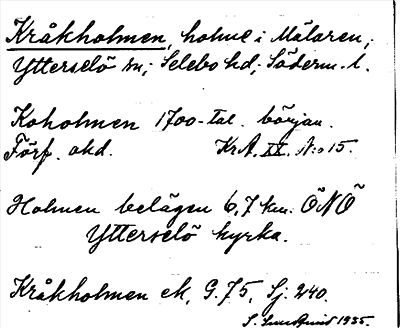 Kråkholmen, holme i Mälaren,
Ytterselö sn; Selebo hd; Söderm. l.
Koholmen 1700-tal. början.
Förf. okd. Kr.A. XX. N:o 15.
Holmen belägen 6,7 km. ÖNÖ
Ytterselö kyrka.
Kråkholmen ek, G. 75, Sj. 240.
S. 1935.